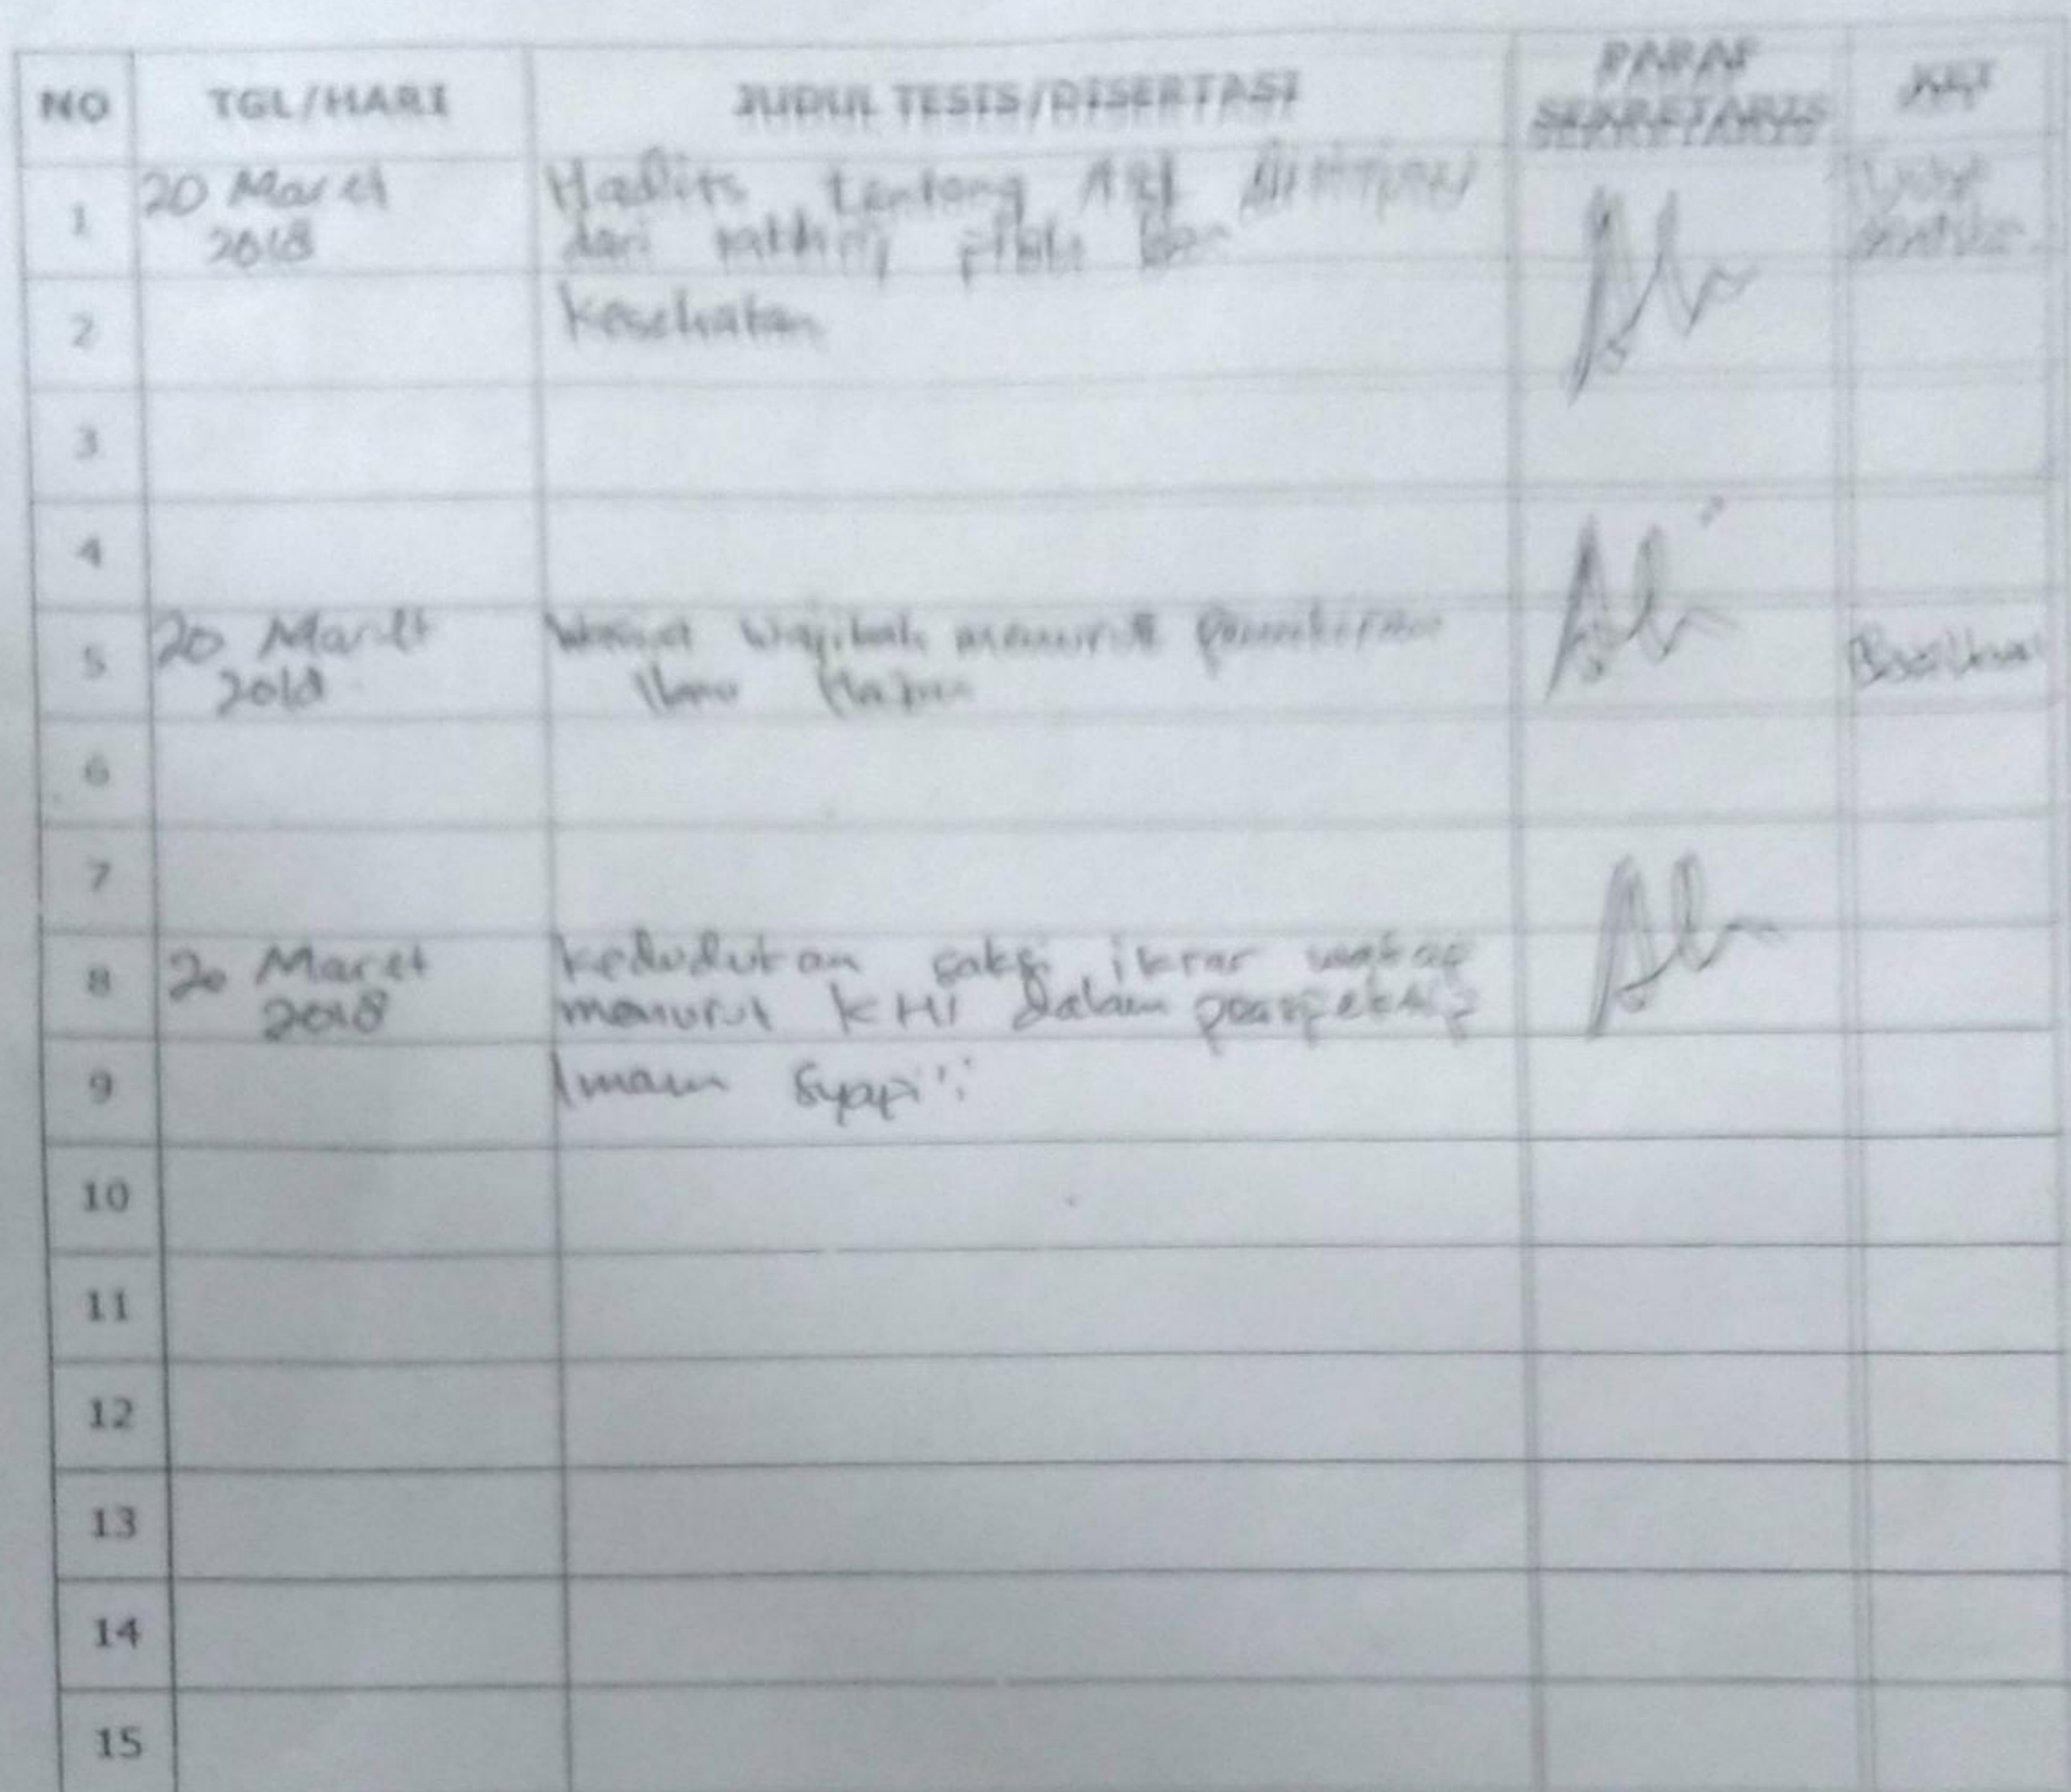 NO TGL/HARI JUDUL TESIS/DISERTASI PARAF SEKRETARIS KET
1 20 Maret 2018 Hadits tentang ASI
dari fiqih dan
2 Kesehatan
3
4
5 20 Maret 2018 Wasiat Wajibah menurut pemikiran
Ibnu Hazm
6
7
8 20 Maret 2018 kedudukan saksi ikrar wakaf
menurut KHI dalam perspektif
9 Imam Syapi'i
10
11
12
13
14
15